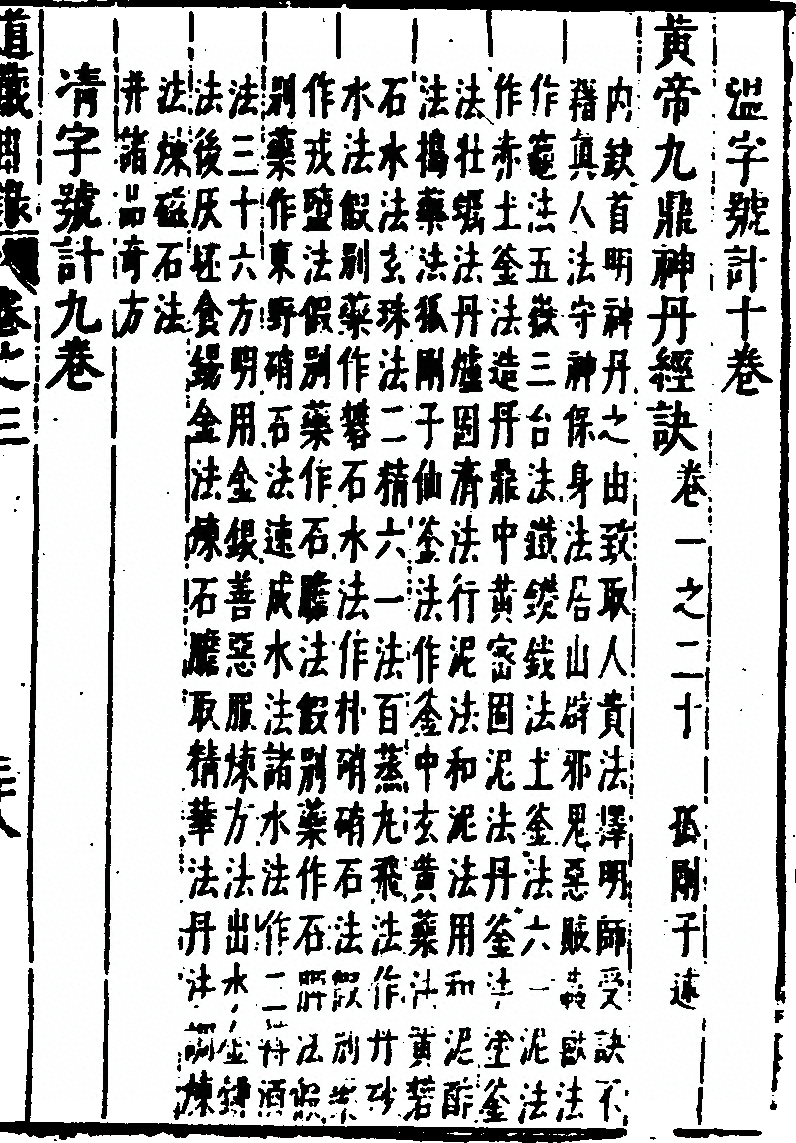 溫字號計十卷
黃帝九鼎神丹經訣卷一之二十　狐剛子述
內缺首明神丹之由致取人貴法擇明師受訣不
藉眞人法守神保身法居山辟邪鬼惡賊　獸法
作竈法五嶽三台法鐵鐷鉞法土釜法六一泥法
作赤土釜法造丹鼎中黃密固泥法丹釜法塗釜
法牡蠣法丹爐固濟法行泥法和泥法用和泥酢
法搗藥法狐剛子仙釜法作釜中玄黃藥法黃礬
石水法玄珠法二精六一法百蒸九飛法作丹砂
水法假別藥作礬石水法作朴硝硝石法假別藥
作戎鹽法假別藥作石膽法假別藥作石　法假
別藥作東野硝石法速成水法諸水法作二　酒
法三十六方明用金銀善惡服煉方法出水金鑛
法後灰坯食鍚金法煉石膽取精華法丹法訓煉
法煉磁石法
并諸品奇方
凊字號計九卷
道藏目錄　卷之三